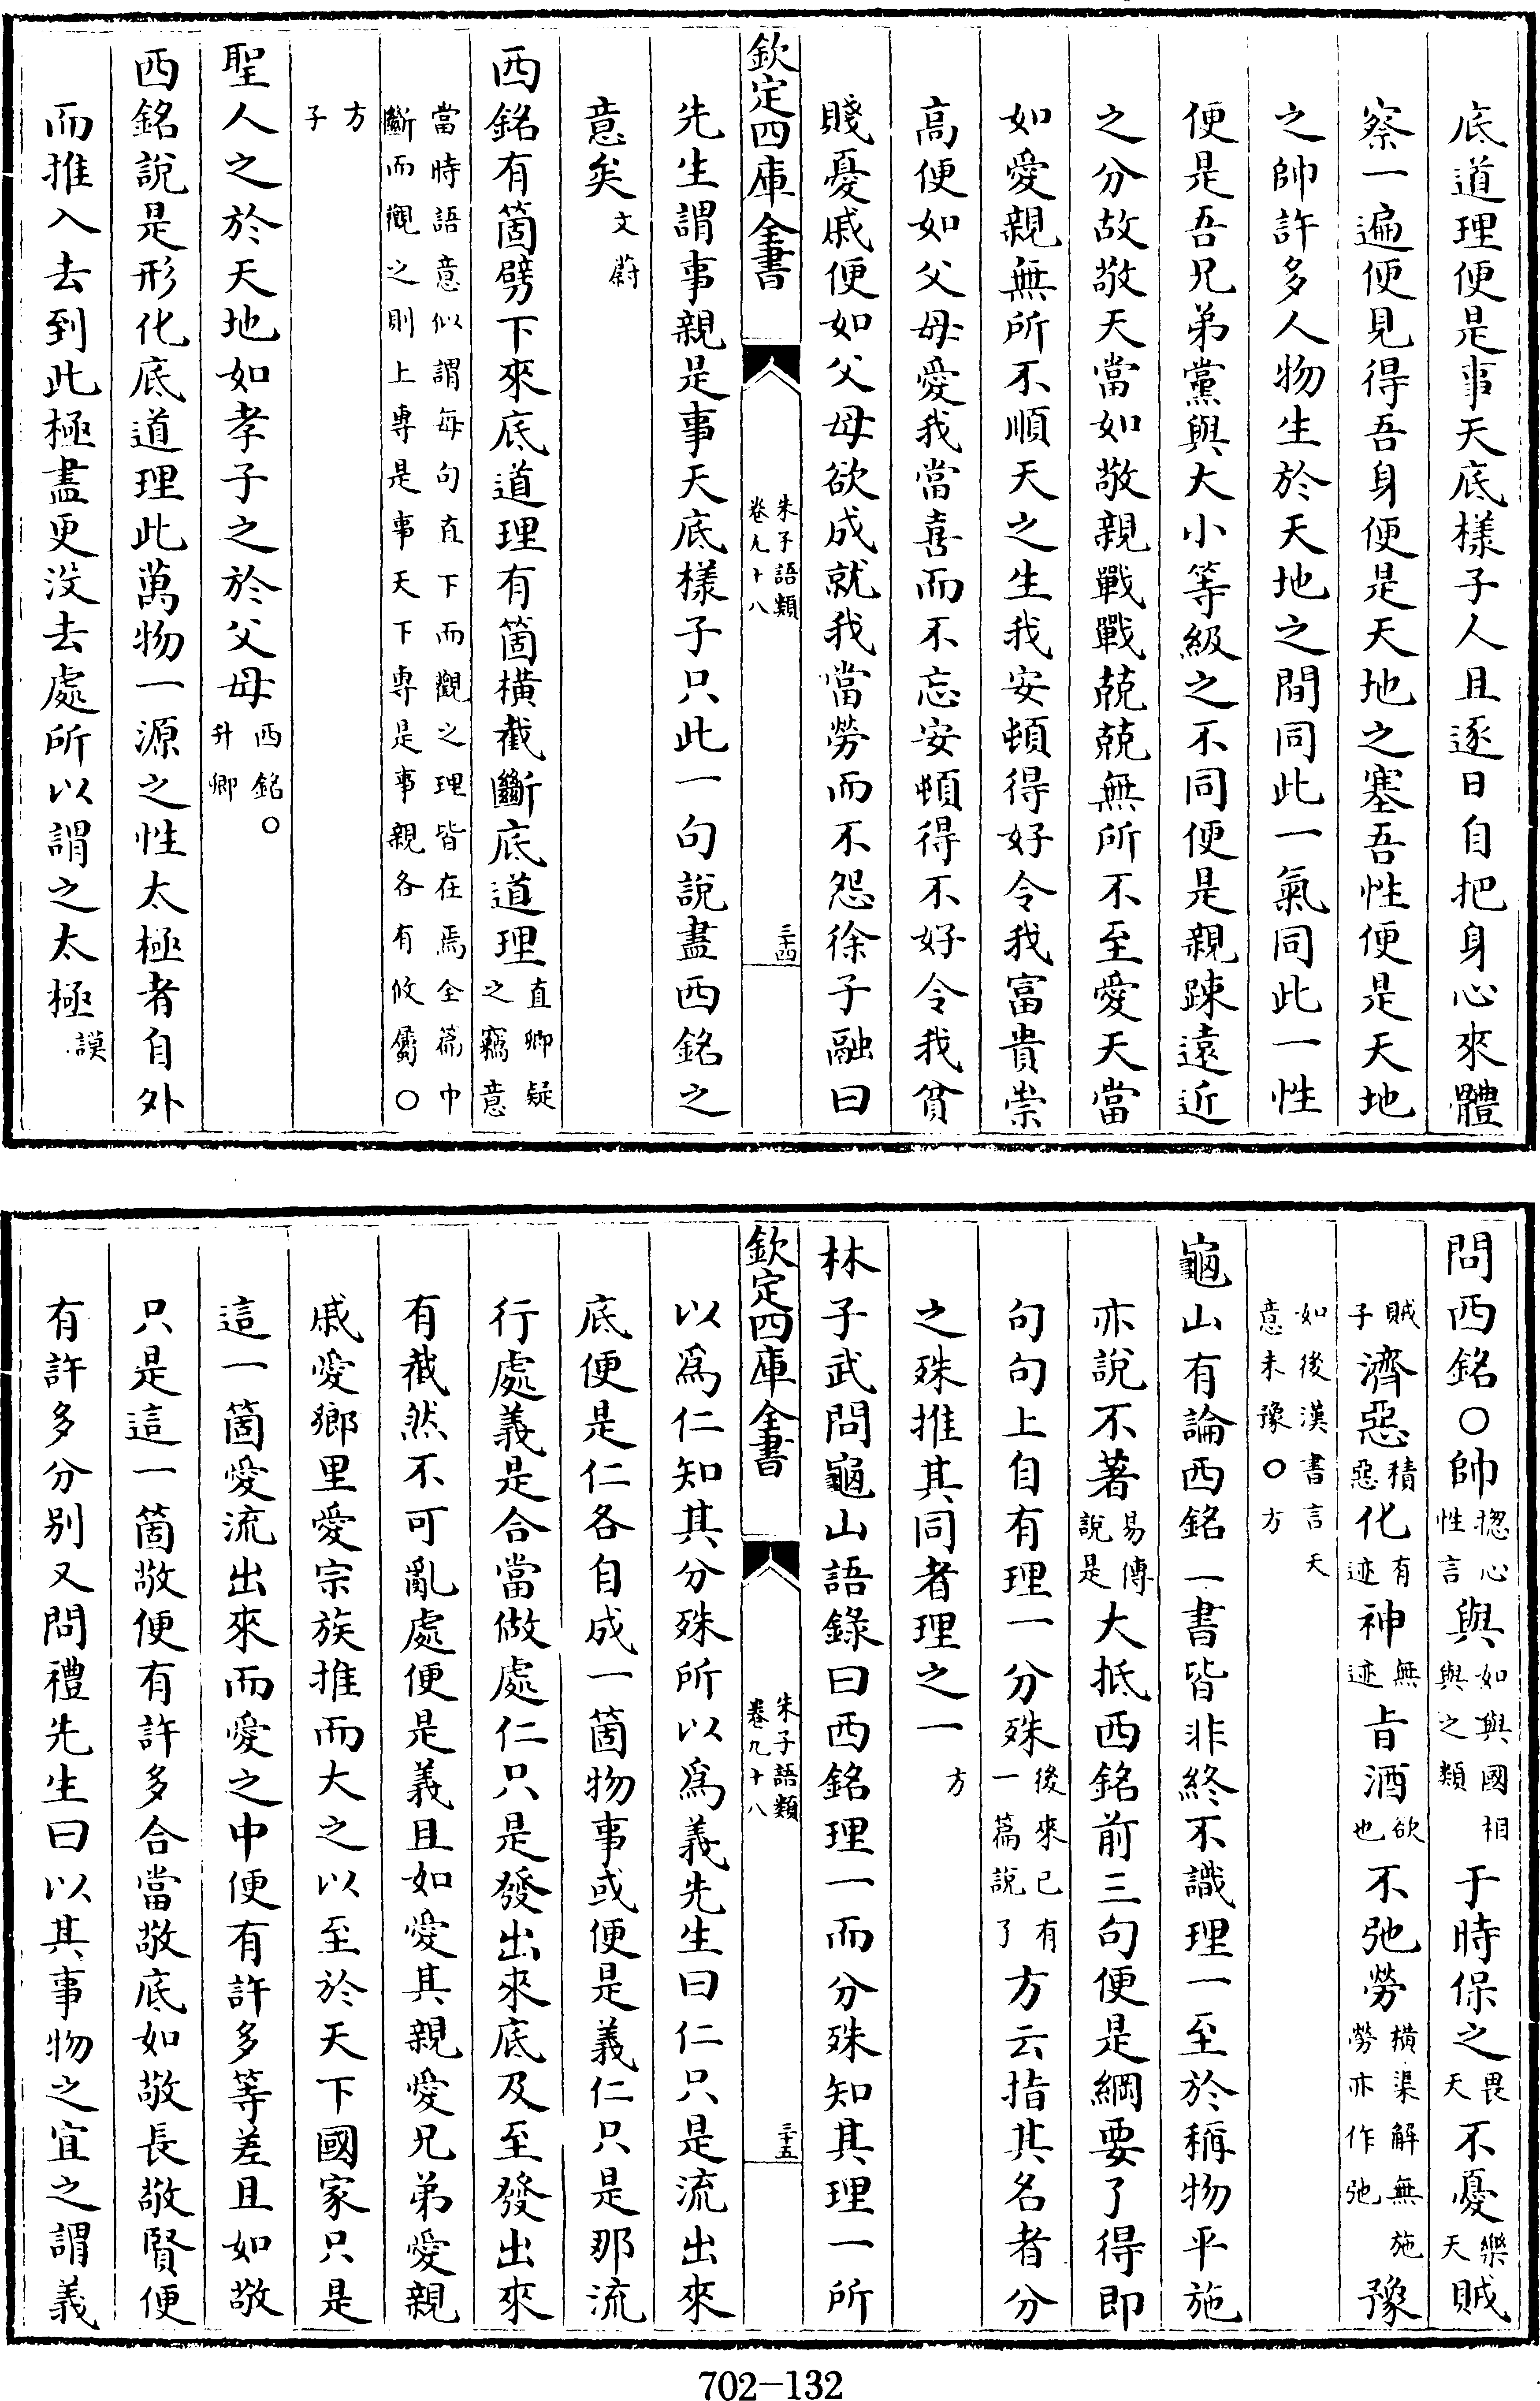 底道理便是事天底樣子人且逐日自把身心來體
察一遍便見得吾身便是天地之塞吾性便是天地
之帥許多人物生於天地之間同此一氣同此一性
便是吾兄弟黨與大小等級之不同便是親踈遠近
之分故敬天當如敬親戰戰兢兢無所不至愛天當
如愛親無所不順天之生我安頓得好令我富貴崇
高便如父母愛我當喜而不忘安頓得不好令我貧
賤憂戚便如父母欲成就我當勞而不怨徐子融曰
欽定四庫全書 朱子語類卷九十八 三十四
先生謂事親是事天底樣子只此一句說盡西銘之
意矣文蔚
西銘有箇劈下來底道理有箇橫截斷底道理直卿疑之竊意
當時語意似謂每句直下而觀之理皆在焉全篇中斷而觀之則上專是事天下專是事親各有攸屬○
方子
聖人之於天地如孝子之於父母西銘○升卿
西銘說是形化底道理此萬物一源之性太極者自外
而推入去到此極盡更沒去處所以謂之太極謨
問西銘○帥揔心性言與如與國相與之類于時保之畏天不憂樂天賊
賊子濟惡積惡化有迹神無迹旨酒欲也不弛勞橫渠解無施勞亦作弛豫
如後漢書言天意未豫○方
龜山有論西銘一書皆非終不識理一至於稱物平施
亦說不著易傳說是大抵西銘前三句便是綱要了得即
句句上自有理一分殊後來已有一篇說了方云指其名者分
之殊推其同者理之一方
林子武問龜山語錄曰西銘理一而分殊知其理一所
欽定四庫全書 朱子語類卷九十八 三十五
以爲仁知其分殊所以爲義先生曰仁只是流出來
底便是仁各自成一箇物事或便是義仁只是那流
行處義是合當做處仁只是發出來底及至發出來
有截然不可亂處便是義且如愛其親愛兄弟愛親
戚愛鄉里愛宗族推而大之以至於天下國家只是
這一箇愛流出來而愛之中便有許多等差且如敬
只是這一箇敬便有許多合當敬底如敬長敬賢便
有許多分別又問禮先生曰以其事物之宜之謂義
702-132